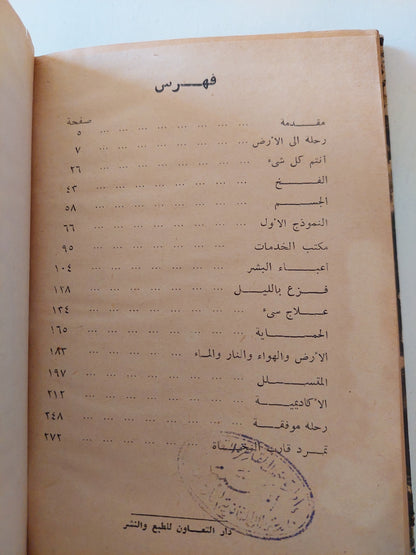 فهرس
صفحة
مقدمة ... ... ... ... ... ... ... ٥
رحله الى الارض ... ... ... ... ... ٧
انتم كل شىء ... ... ... ... ... ... ٢٦
الفخ ... ... ... ... ... ... ... ٤٣
الجسم ... ... ... ... ... ... ... ٥٨
النموذج الاول ... ... ... ... ... ٦٦
مكتب الخدمات ... ... ... ... ... ٩٥
اعباء البشر ... ... ... ... ... ... ١٠٤
فزع بالليل ... ... ... ... ... ... ١٢٨
علاج سىء ... ... ... ... ... ... ١٣٤
الحماية ... ... ... ... ... ... ... ١٦٥
الارض والهواء والنار والماء ... ... ... ١٨٣
المتسلل ... ... ... ... ... ... ... ١٩٧
الاكاديمية ... ... ... ... ... ... ٢١٢
رحله موفقة ... ... ... ... ... ... ٢٤٨
تمرد قارب النجاة ... ... ... ... ٢٧٢
دار التعاون للطبع والنشر